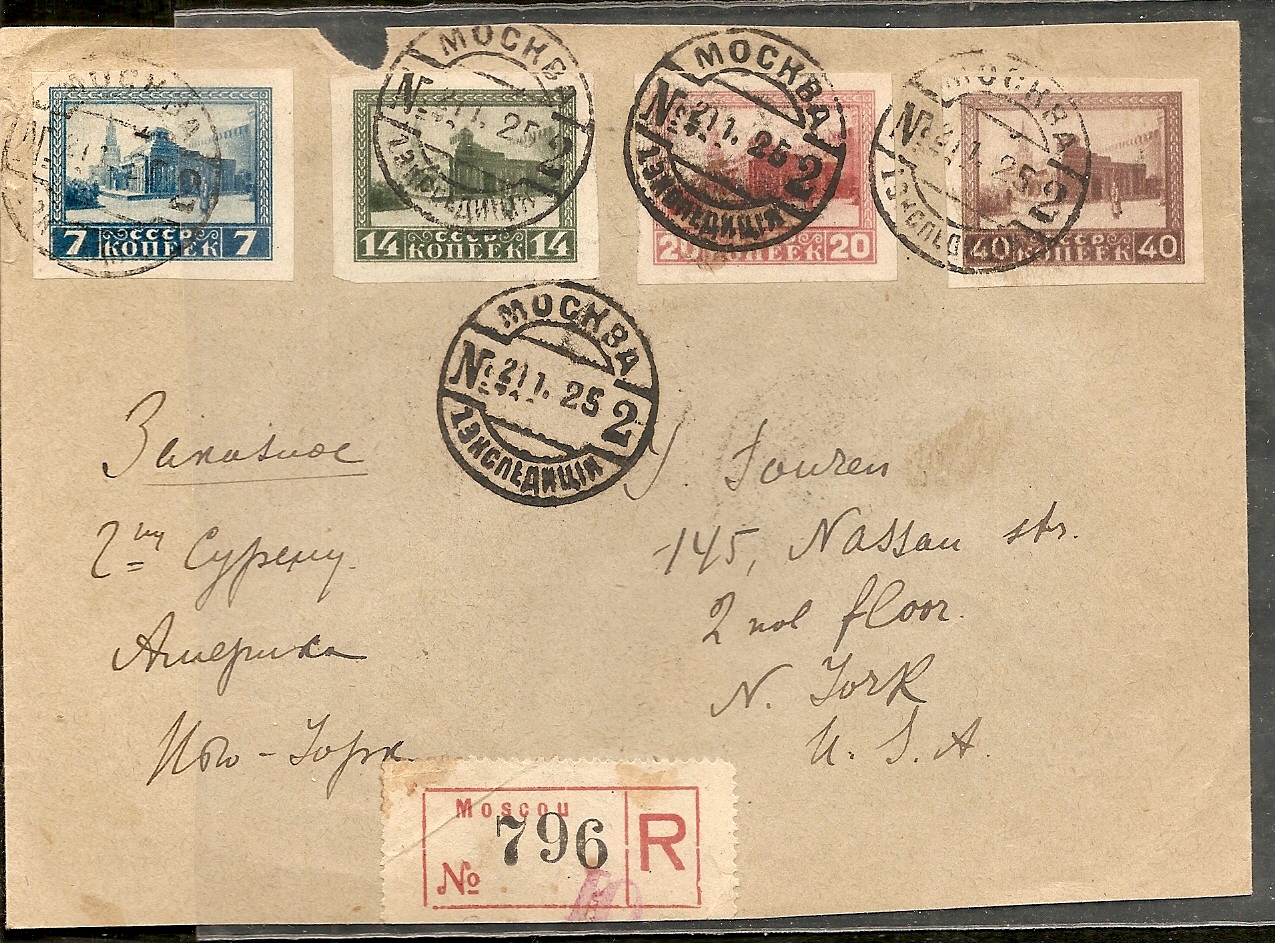 СССР
7 КОПЕЕК 7
СССР
14 КОПЕЕК 14
СССР
20 КОПЕЕК 20
СССР
40 КОПЕЕК 40
МОСКВА
1 ЭКСПЕДИЦІЯ
МОСКВА
№ 21 1. 25 2
1 ЭКСПЕДИЦІЯ
МОСКВА
№ 21 1. 25 2
1 ЭКСПЕДИЦІЯ
МОСКВА
№ 21 1. 25 2
1 ЭКСПЕДИЦІЯ
МОСКВА
№ 21 1. 25 2
1 ЭКСПЕДИЦІЯ
Заказное
Г-ну Сурену
Америка
Нью-Йорк
145, Nassau str.
2nd floor.
N. York
U. S. A.
Moscou
№ 796 R